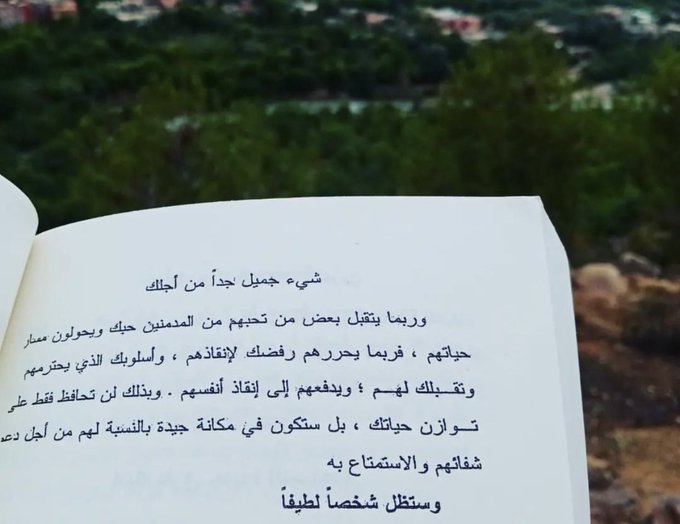 شيء جميل جداً من أجلك
وربما يتقبل بعض من تحبهم من المدمنين حبك ويحولون مسار
حياتهم ، فربما يحررهم رفضك لإنقاذهم ، وأسلوبك الذي يحترمهم
وتقـــبلك لهـــم ؛ ويدفعهم إلى إنقاذ أنفسهم . وبذلك لن تحافظ فقط على
تـــوازن حياتك ، بل ستكون في مكانة جيدة بالنسبة لهم من أجل دعم
شفائهم والاستمتاع به
وستظل شخصاً لطيفاً